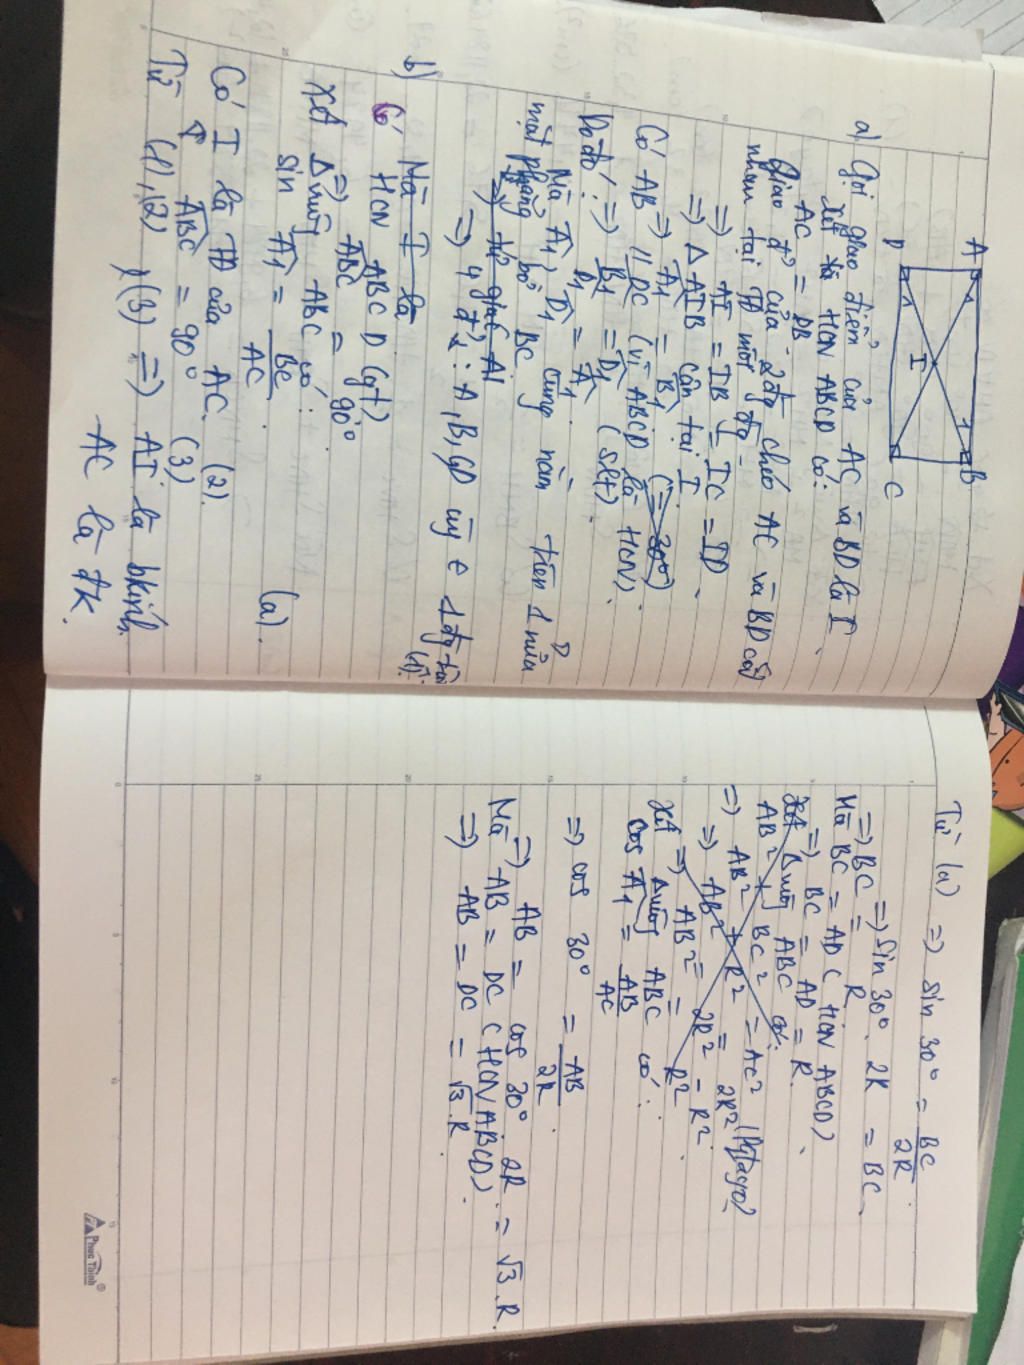 A
B
D
C
I
1
1
1
a) Gọi giao điểm của AC và BD là I
Xét HCN ABCD có:
AC = DB
giao đ² của 2 đg chéo AC và BD cắt
nhau tại TĐ mỗi đg
=> AI = IB = IC = ID
=> Δ AIB cân tại I
=> A1 = B1 (= 30°)
Có AB // DC (vì ABCD là HCN)
=> B1 = D1 (slt)
Do đó: D1 = A1
Mà A1, D1 cùng nằm trên 1 nửa
mặt phẳng bờ BC
=> tứ giác A
=> 4 đ²: A, B, C, D cùng ∈ 1 đg tròn (1).
b) Mà I là
Có HCN ABCD (gt)
=> ABC = 90°
Xét Δ vuông ABC có:
sin A1 = BC/AC (a).
Có I là TĐ của AC. (2)
ABC = 90° (3)
Từ (1), (2), (3) => AI là bkính
AC là đk.
Từ (a) => sin 30° = BC/2R
=> sin 30°. 2R = BC
=> BC = R
Mà BC = AD (HCN ABCD)
=> BC = AD = R.
Xét Δ vuông ABC có:
AB² + BC² = AC² (Pytago)
=> AB² + R² = 2R²
=> AB² = 2R² - R²
=> AB² = R²
Xét Δ vuông ABC có:
cos A1 = AB/AC
=> cos 30° = AB/2R
=> AB = cos 30°. 2R = √3.R
Mà AB = DC (HCN ABCD)
=> AB = DC = √3.R
Phuc Thinh®